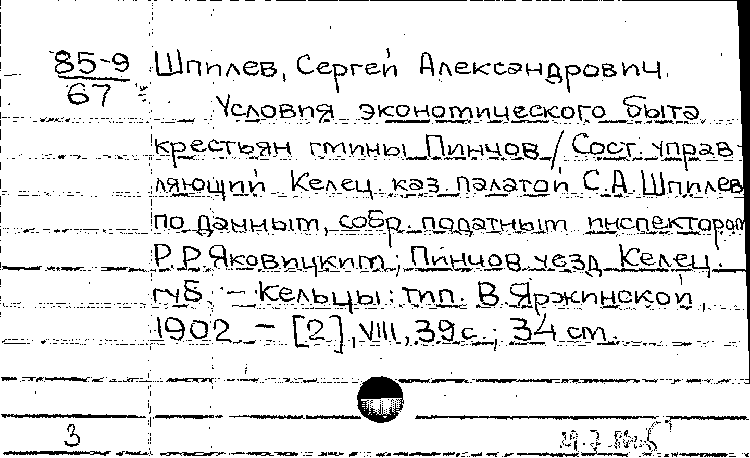 85-9
67
Шпилев, Сергей Александрович.
Условия экономического быта
крестьян гмины Пинчов / Сост. управ-
ляющий Келец. каз. палатой С.А. Шпилев
по данным, собр. податным инспектором
Р.Р. Яковицким; Пинчов. уезд Келец.
губ. – Кельцы: тип. В. Яржинской,
1902 – [2], VIII, 39 с.; 34 см.
3